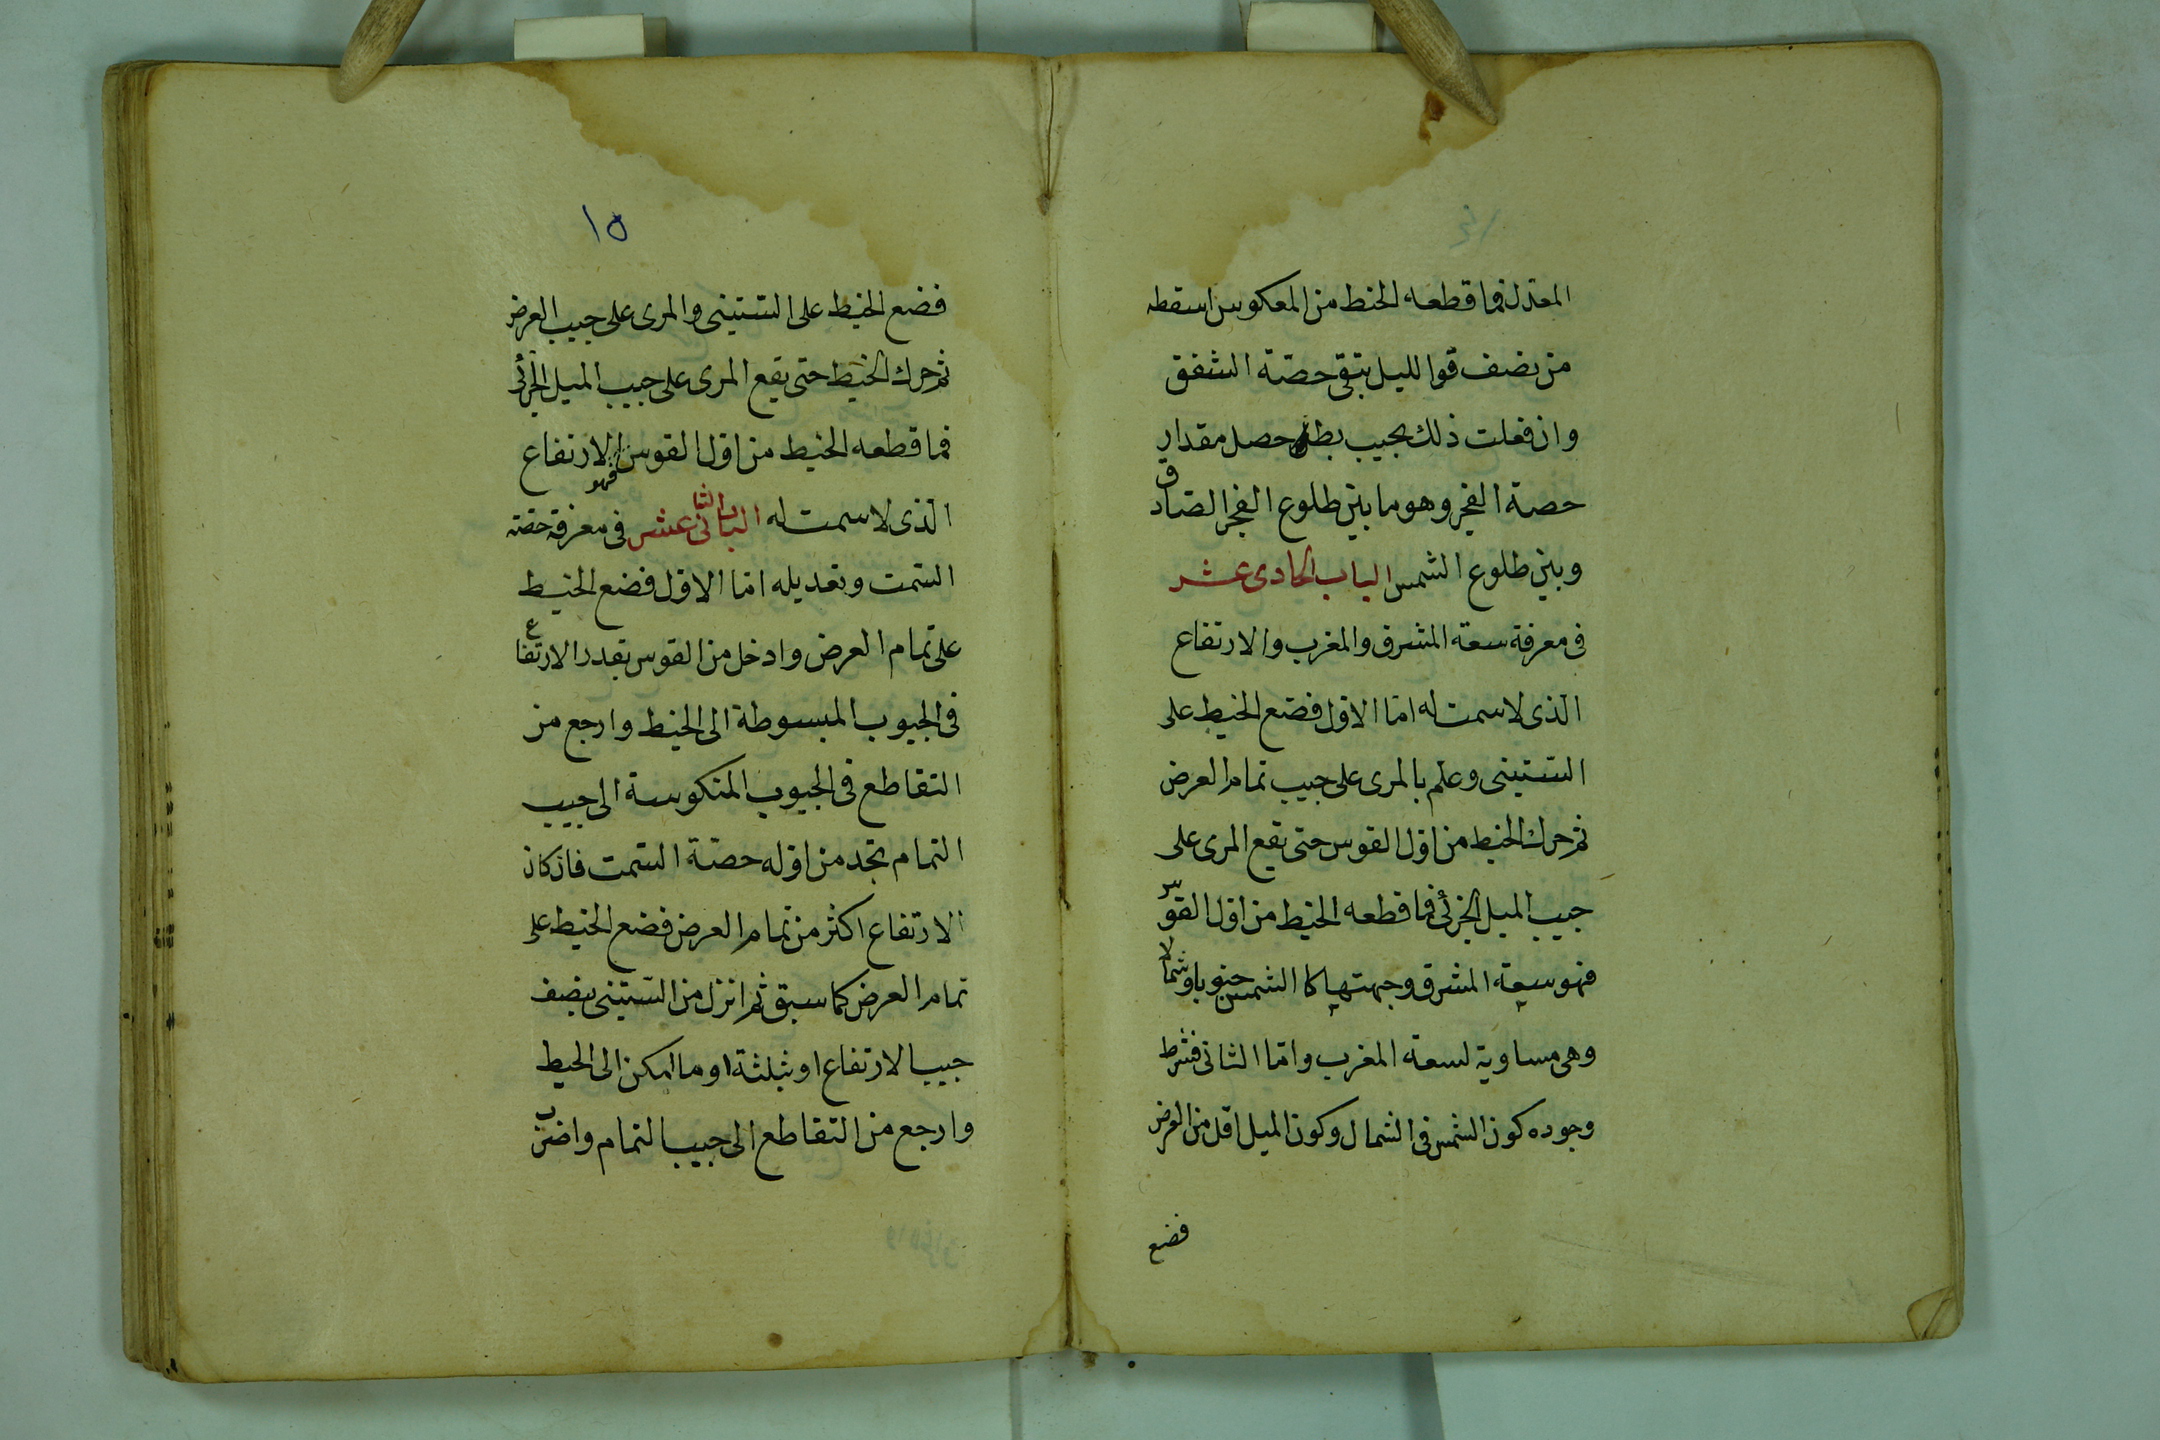 ١٤
المعتدل فما قطعه الخيط من المعكوس اسقطه
من نصف قوا لليل تبقى حصة الشفق
وان فعلت ذلك بجيب يط حصل مقدار
حصة الفجر وهو ما بين طلوع الفجر الصادق
وبين طلوع الشمس الباب الحادى عشر
فى معرفة سعة المشرق والمغرب والارتفاع
الذى لا سمت له اما الاول فضع الخيط على
الستينى وعلم بالمرى على جيب تمام العرض
ثم حرك الخيط من اول القوس حتى يقع المرى على
جيب الميل الجزئى فما قطعه الخيط من اول القوس
فهو سعة المشرق وجهتها كا الشمس جنوبا وشمالا
وهى مساوية لسعة المغرب واما الثانى فشرط
وجوده كون الشمس فى الشمال وكون الميل اقل من العرض
فضع
١٥
فضع الخيط على الستينى والمرى على جيب العرض
ثم حرك الخيط حتى يقع المرى على جيب الميل الجزئى
فما قطعه الخيط من اول القوس فهو الارتفاع
الذى لا سمت له الباب الثانى عشر فى معرفة حصة
السمت وتعديله اما الاول فضع الخيط
على تمام العرض وادخل من القوس بقدر الارتفاع
فى الجيوب المبسوطة الى الخيط وارجع من
التقاطع فى الجيوب المنكوسة الى جيب
التمام تجد من اوله حصة السمت فان كان
الارتفاع اكثر من تمام العرض فضع الخيط على
تمام العرض كما سبق ثم انزل من الستينى بنصف
جيب الارتفاع او بثلثة او ما امكن الى الخيط
وارجع من التقاطع الى جيب التمام واضرب